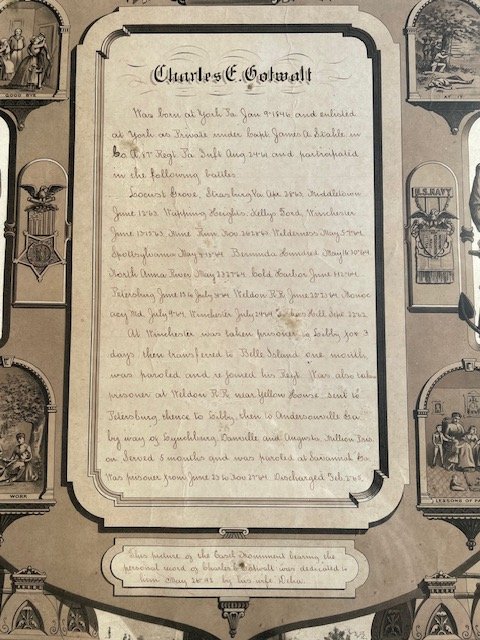 GOOD BYE
AT IT
U.S. NAVY
WORK
LESSONS OF PA
Charles E. Gotwalt
Was born at York Pa. Jan 9-1846, and enlisted
at York as Private under Capt James A Stahle in
Co. A, 87 Regt. Pa. Inft. Aug 24-61 and partcipated
in the following battles.
Locust Grove, Strasburg Va Apr. 28-63, Middletown
June 12-63. Wapping Heights, Kellys Ford, Winchester
June 13 15-63, Mine Run Nov 26 28-63, Wilderness May 5-7-64,
Spottsylvania May 8-18-64 Bermuda Hundred May 16 30-64,
North Anna River May 23 27-64. Cold Harbor June 1-12-64
Petersburg June 15 to July 8-64 Weldon R.R. June 22 23-64 Monoc
acy Md. July 9-64, Winchester July 24-64 Hill Sept. 22
At Winchester was taken prisoner to Libby for 3
days then transferred to Belle Island one month,
was paroled and re-joined his Regt. Was also taken
prisoner at Weldon R.R. near Yellow House. Sent to
Petersburg thence to Libby, then to Andersonville Ga
by way of Lynchburg, Danville and Augusta, Millen Pris
on Served 5 months and was paroled at Savannah Ga.
Was prisoner from June 23 to Nov 27-64. Discharged Feb. 2-65.
This picture of the Monument bearing the
personal record of Charles E. Gotwalt was dedicated to
him May 26-92 by his wife Delia.